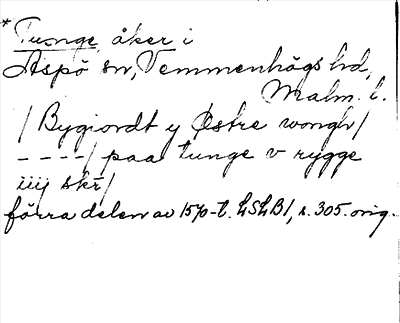 * Tunge, åker i
Aspö sn, Vemmenhögs hd,
Malm. l.
/ Bygiordt y Østre wongh/
----/ paa tunge v rygge
iiij skr/
förra delen av 1570-t. LSLB1, s. 305. orig.